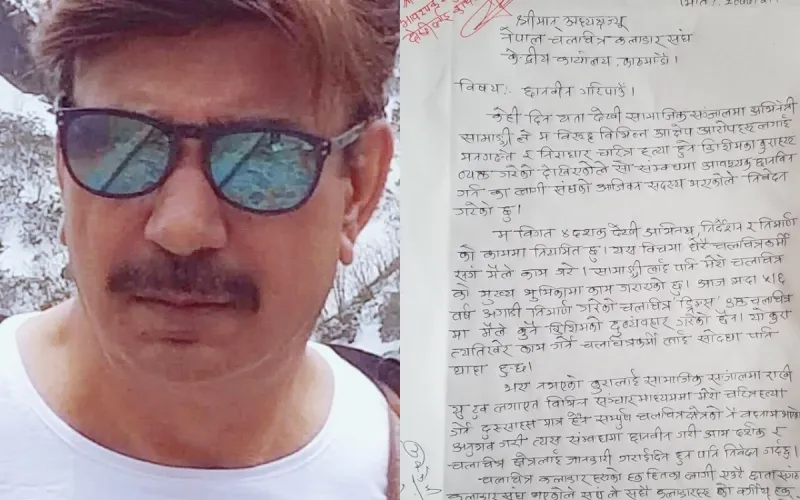 श्रीमान अध्यक्षज्यू
नेपाल चलचित्र कलाकार संघ
केन्द्रीय कार्यालय, काठमाडौं।
विषय:- छानवीन गरिपाऊँ।
केही दिन यता देखी सामाजिक सञ्जालमा अभिनेत्री
साम्राज्ञी ले म विरुद्ध विभिन्न आक्षेप आरोपहरु लगाई
मनगढन्ते र निराधार चरित्र हत्या हुने किसिमका कुराहरु
व्यक्त गरेको देखिएकोले सो सम्बन्धमा आवश्यक छानविन
गर्न का लागी संघको आजिवन सदस्य भएकोले निवेदन
गरेको छु।
म विगत ४ दशक देखी अभिनय, निर्देशन र निर्माण
को काममा नियमित छु। यस विचमा धेरै चलचित्रकर्मी
सँग मैले काम गरे। साम्राज्ञी लाई पनि मेरो चलचित्र
को मुख्य भुमिकामा काम गराएको छु। आज भन्दा ५।६
वर्ष अगाडी निर्माण गरेको चलचित्र "ड्रिम्स" चलचित्र
मा मैले कुनै किसिमको दुर्व्यवहार गरेको छैन। यो कुरा
त्यतिखेर काम गर्ने चलचित्रकर्मी लाई सोध्दा पनि
थाहा हुन्छ।
भए नभएको कुरालाई सामाजिक सञ्जालमा राखी
यु टुव लगाएत विभिन्न सञ्चारमाध्यममा मेरो चरित्रहत्या
गर्ने दुस्साहस मात्र हैन सम्पुर्ण चलचित्रक्षेत्रको नै बदनाम भएको
अनुभव गरी त्यस सम्बन्धमा छानवीन गरी आम दर्शक र
चलचित्र क्षेत्रलाई जानकारी गराईदिन हुन पनि निवेदन गर्दछु।
चलचित्र कलाकार हरुको हक हितका लागी एउटै छाता संगठन
कलाकार संघ भएकोले